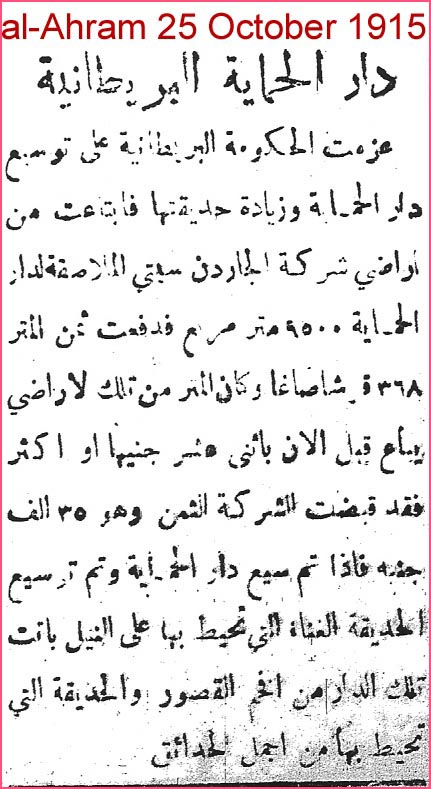 al-Ahram 25 October 1915
دار الحماية البريطانية
عزمت الحكومة البريطانية على توسيع
دار الحماية وزيادة حديقتها فابتاعت من
اراضي شركة الجاردن سيتي الملاصقة لدار
الحماية ٩٥٠٠ متر مربع فدفعت ثمن المتر
٣٦٨ قرشاصاغا وكان المتر من تلك لاراضي
يباع قبل الان باثنى عشر جنيها او اكثر
فقد قبضت الشركة الثمن وهو ٣٥ الف
جنيه فاذا تم سيع دار الحماية وتم توسيع
الحديقة الغناء التي تحيط بها على النيل باتت
تلك الدار من افخم القصور والحديقة التي
تحيط بها من اجمل الحدائق